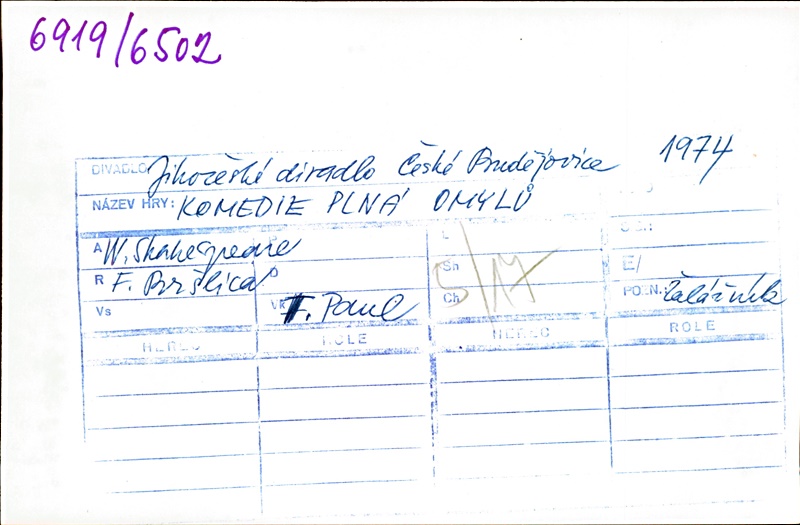 6919/6502
DIVADLO Jihočeské divadlo České Budějovice 1974
NÁZEV HRY: KOMEDIE PLNÁ OMYLŮ
A W. Shakespeare L
R F. Bršlica Sh E/
Vs Vk F. Paul Ch POZN. Žalářník
S/17
HEREC ROLE HEREC ROLE